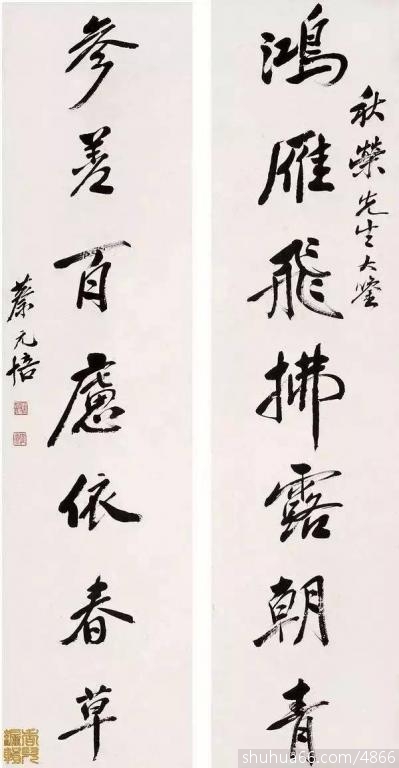 秋榮先生大鑒
鴻雁飛拂露朝青
参差百慮依春草
蔡元培
shuhua66.com/4866